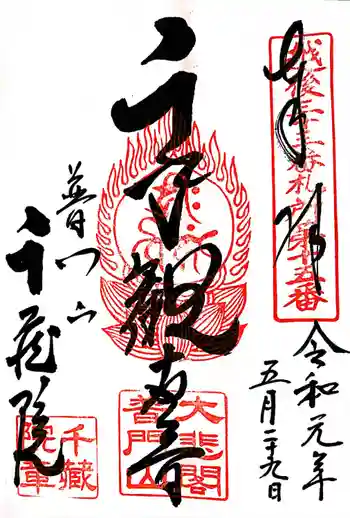 越後三十三番札所第十五番
奉拝
令和元年
五月二十九日
千手觀世音
大悲閣
普門山
普門山
千蔵院
千藏
院章